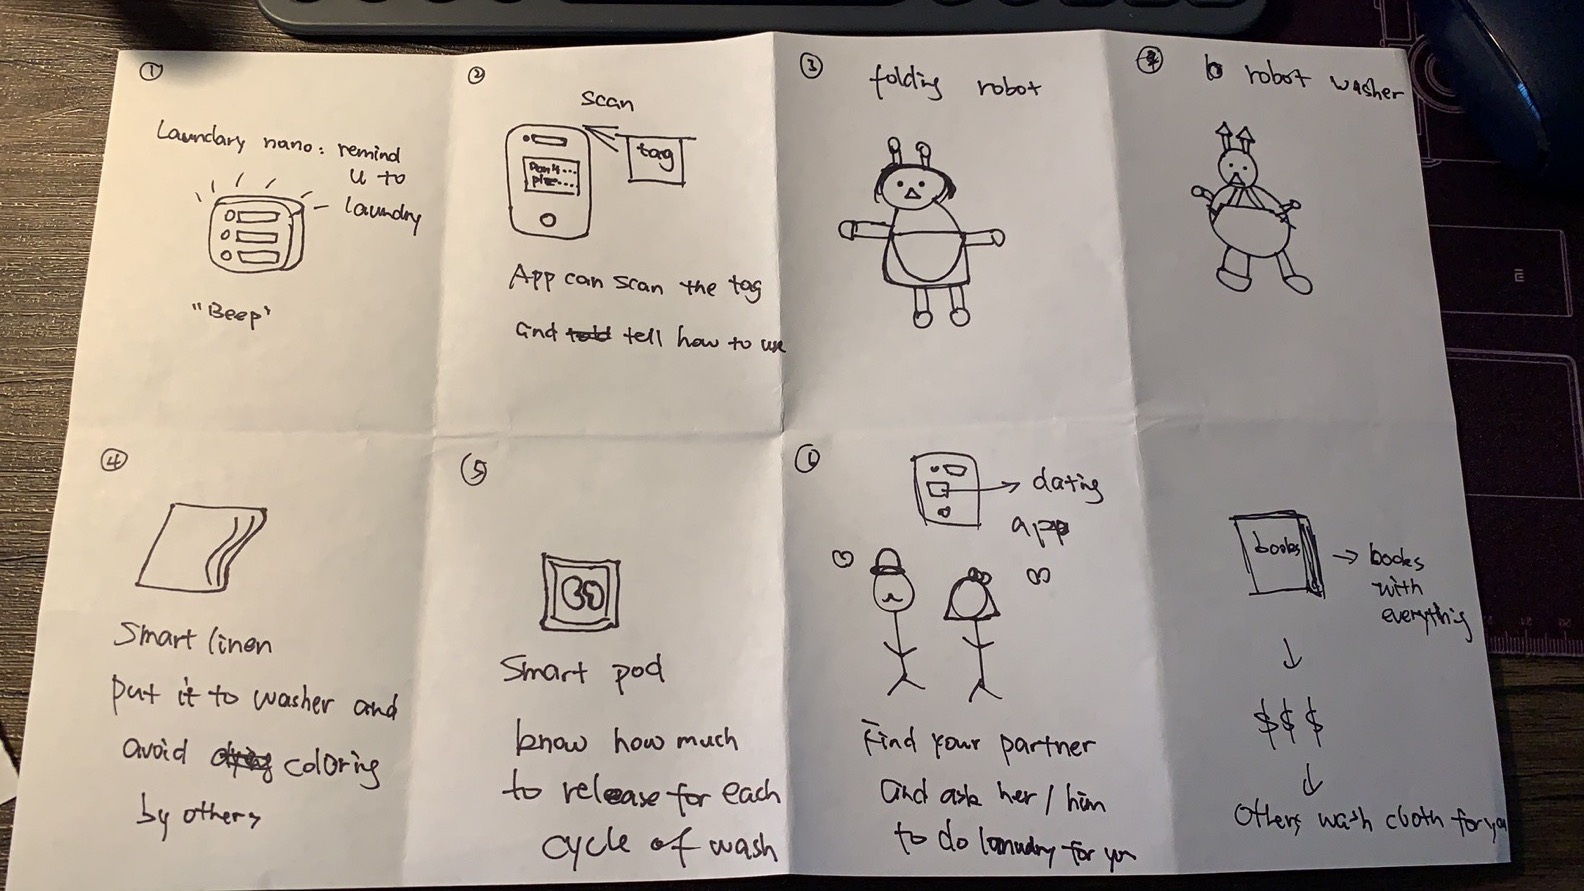 ①
Laundary nano: remind
u to
laundry
"Beep"
②
scan
tag
Don't
App can scan the tag
and told tell how to use
③
folding robot
robot washer
④
Smart linen
put it to washer and
avoid coloring
by others
⑤
Smart pod
know how much
to release for each
cycle of wash
dating
app
Find your partner
and ask her / him
to do laundry for you
books
books
with
everything
$ $ $
Others wash cloth for you